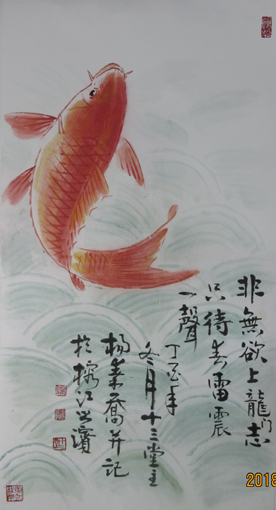 非無欲上龍門志
只待春雷震
一聲
丁丑年
冬月十三堂主
楊業喬并記
於榕江之濱
2018